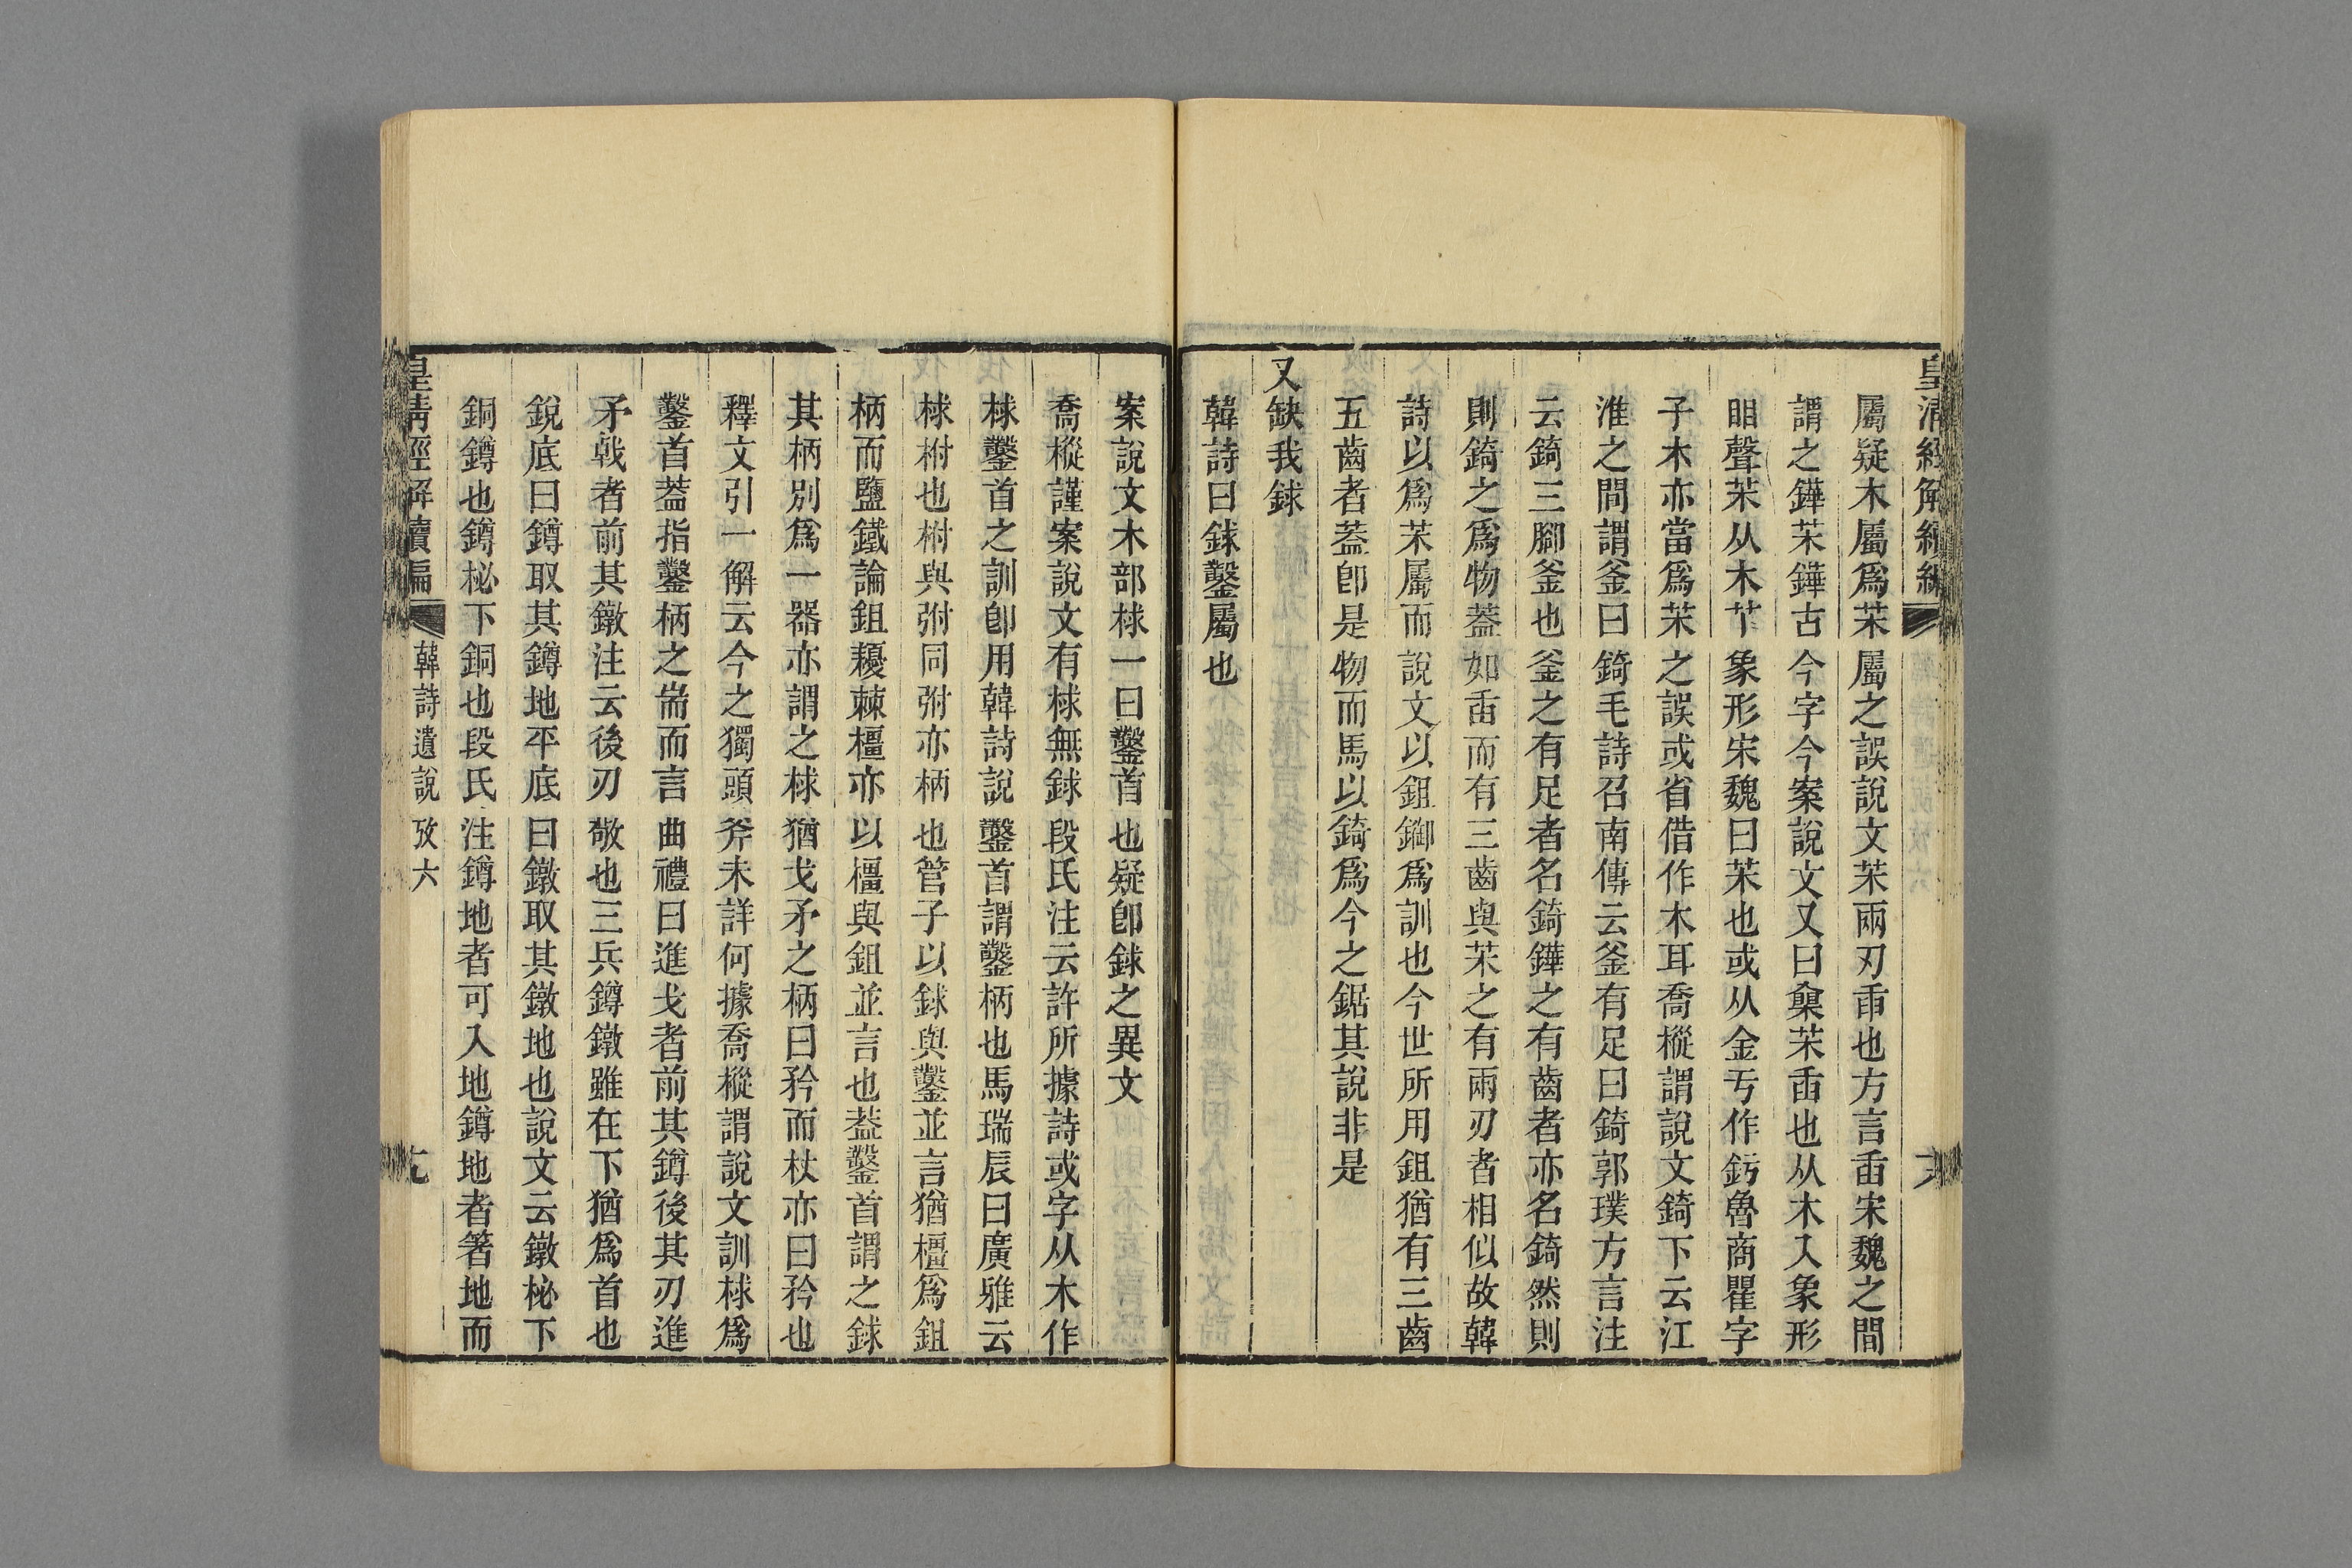 皇清經解續編
屬疑木屬爲茉屬之誤說文茉兩刃臿也方言臿宋魏之間
謂之鏵茉鏵古今字今案說文又曰枲茉臿也从木入象形
䀠聲茉从木𦫳象形宋魏曰茉也或从金亏作釫魯商瞿字
子木亦當爲茉之誤或省借作木耳喬樅謂說文錡下云江
淮之間謂釜曰錡毛詩召南傳云釜有足曰錡郭璞方言注
云錡三腳釜也釜之有足者名錡鏵之有齒者亦名錡然則
則錡之爲物蓋如臿而有三齒與茉之有兩刃者相似故韓
詩以爲茉屬而說文以鉏鋙爲訓也今世所用鉏猶有三齒
五齒者蓋卽是物而馬以錡爲今之鋸其說非是
又缺我銶
韓詩曰銶鑿屬也
案說文木部梂一曰鑿首也疑卽銶之異文
喬樅謹案說文有梂無銶段氏注云許所據詩或字从木作
梂鑿首之訓卽用韓詩說鑿首謂鑿柄也馬瑞辰曰廣雅云
梂柎也柎與弣同弣亦柄也管子以銶與鑿並言猶橿爲鉏
柄而鹽鐵論鉏耰棘橿亦以橿與鉏並言也蓋鑿首謂之銶
其柄別爲一器亦謂之梂猶戈矛之柄曰矜而杖亦曰矜也
釋文引一解云今之獨頭斧未詳何據喬樅謂說文訓梂爲
鑿首蓋指鑿柄之耑而言曲禮曰進戈者前其鐏後其刃進
矛戟者前其鐓注云後刃敬也三兵鐏鐓雖在下猶爲首也
銳底曰鐏取其鐏地平底曰鐓取其鐓地也說文云鐓柲下
銅鐏也鐏柲下銅也段氏注鐏地者可入地鐏地者箸地而
皇清經解續編
韓詩遺說攷六